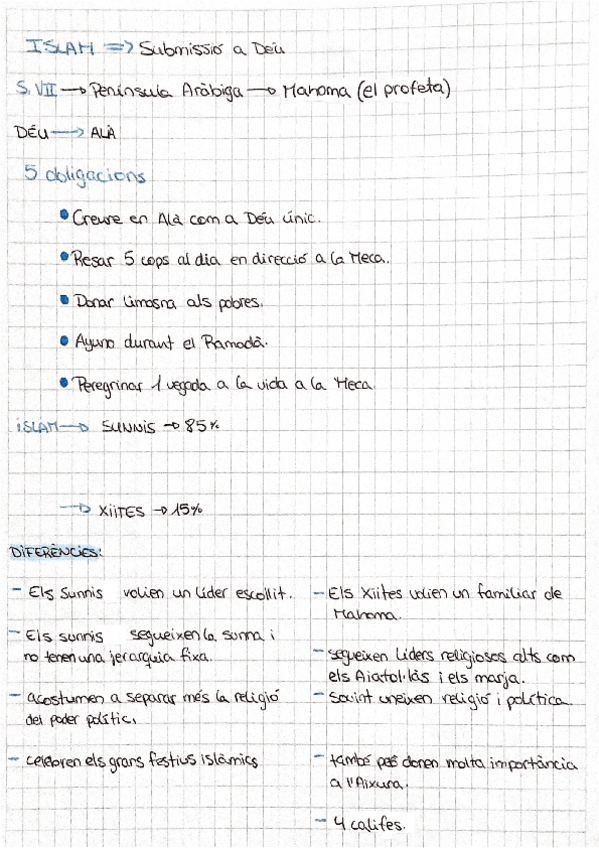 ISLAM => Submissió a Déu
S. VII → Península Aràbiga → Mahoma (el profeta)
DÉU → ALÀ
5 obligacions
• Creure en Alà com a Déu únic.
• Resar 5 cops al dia en direcció a la Meca.
• Donar limosna als pobres.
• Ayuno durant el Ramadà.
• Peregrinar 1 vegada a la vida a la Meca
ISLAM → SUNNIS → 85%
→ XIITES → 15%
DIFERÈNCIES:
- Els Sunnis volien un líder escollit.
- Els sunnis segueixen la sunna i
no tenen una jerarquia fixa.
- acostumen a separar més la religió
del poder polític.
- celebren els grans festius islàmics
- Els Xiites volien un familiar de
Mahoma.
- segueixen líders religiosos alts com
els Aiatol·làs i els marja.
- Sovint uneixen religió i política.
- també donen molta importància
a l'Aixura.
- 4 califes.